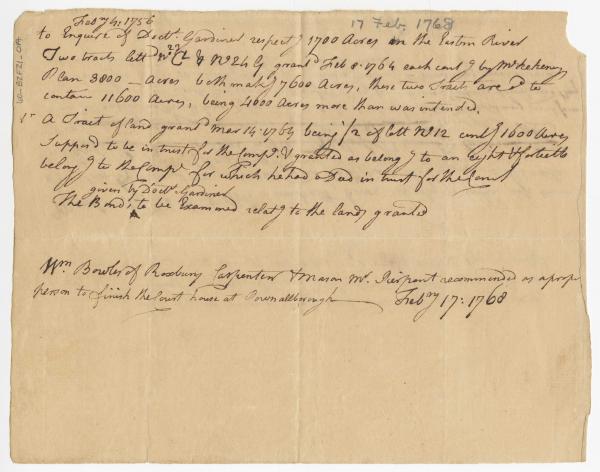 Febry 4: 1756
17 Feb. 1768
to Enquire of Doctr. Gardiner respectg 1700 Acres in the Eastern River
Two tracts Lott No 22 & No 24 by grant Feb 8. 1764 each contg by McKekeney
Plan 3800 – Acres both makg 7600 Acres, these two Tracts are sd to
contain 11600 Acres, being 4000 Acres more than was intended.
A Tract of land grantd Mar 14. 1764 being 1/2 of lott No 12 contg 1600 Acres
Supposd to be in trust for the Compy. & granted as belongg to an eight
belongg to the Compy for which he had a Deed in trust for the
given by Doctr. Gardiner
The Bonds to be Examined relatg to the lands granted
Wm Bowles of Roxbury Carpenter & Mason Mr. Pierpont recommended as a proper
person to finish the Court house at Pownallborough Febry 17: 1768